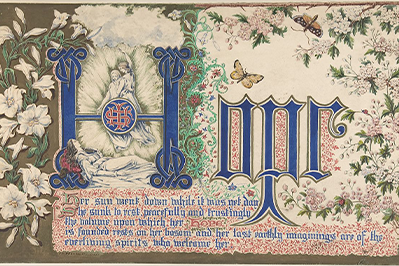 Hope
Her sun went down while it was yet day
to rest peacefully and trustingly
the volume upon which her
is founded rests on her bosom and her last earthly imaginings are of the
spirits who welcome her